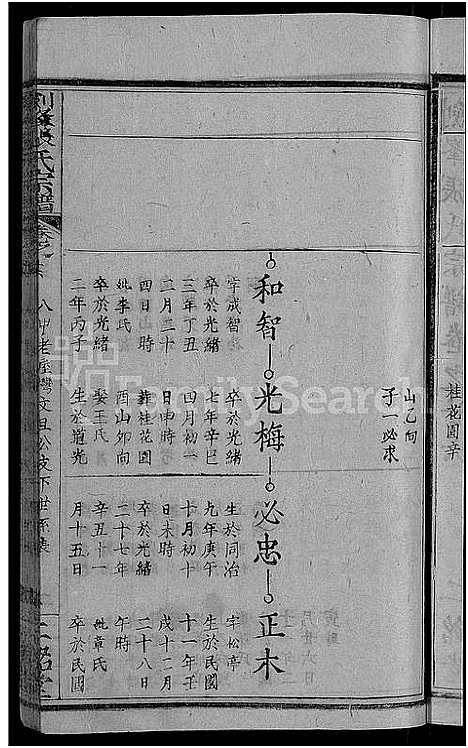 桂花園辛
山乙向
子一必求
和智 光梅 必忠 正木
字成智
卒於光緒
三年丁丑
二月二十
四日 時
妣李氏
卒於光緒
二年丙子
卒於光緒
七年辛巳
四月初一
日申時
葬桂花園
酉山卯向
娶王氏
生於道光
生於同治
九年庚午
十月初十
日未時
卒於光緒
二十七年
辛丑十一
月十五日
字松亭
生於民國
十一年壬
戌十二月
二十八日
午時
妣章氏
卒於民國
張氏宗譜
卷之
八中老屋灣文旦公支下世系表
FamilySearch